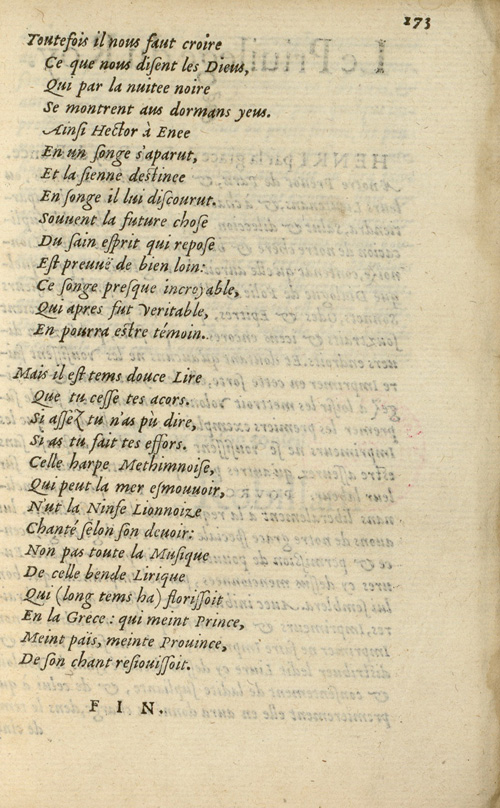 173
Toutefois il nous faut croire
Ce que nous diſent les Dieus,
Qui par la nuitee noire
Se montrent aus dormans yeus.
Ainſi Hector à Enee
En un ſonge s'aparut,
Et la ſienne destinee
En ſonge il lui diſcourut.
Souuent la future choſe
Du ſain eſprit qui repoſe
Eſt preuuë de bien loin:
Ce ſonge preſque incroyable,
Qui apres fut veritable,
En pourra eſtre témoin.
Mais il eſt tems douce Lire
Que tu ceſſe tes acors.
Si aſſez tu n'as pù dire,
Si as tu fait tes effors.
Celle harpe Methimnoiſe,
Qui peut la mer eſmouuoir,
N'ut la Ninfe Lionnoize
Chanté ſelon ſon deuoir:
Non pas toute la Muſique
De celle bende Lirique
Qui (long tems ha) floriſſoit
En la Grece: qui meint Prince,
Meint païs, meinte Prouince,
De ſon chant reſiouiſſoit.
F I N.